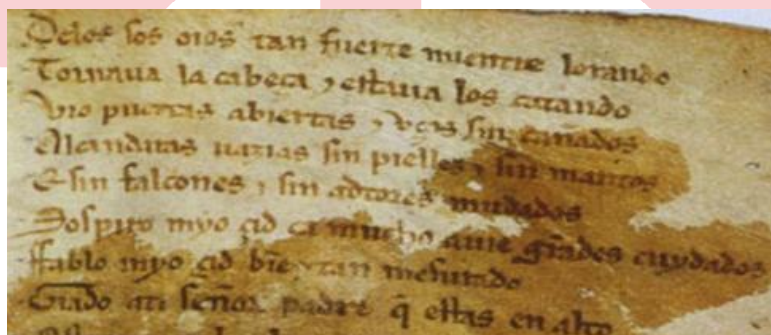 Delos sos oios tan fuerte mientre lorando
Tornaua la cabeça ⁊ estaua los catando
Vio puertas abiertas ⁊ vços sin cañados
Alcandaras uazias sin pielles ⁊ sin mantos
E sin falcones ⁊ sin adtores mudados
Sospiro myo çid ca mucho auie grãdes cuydados
Ffablo myo çid bien ⁊ tan mesurado
Grado ati señor padre q̃ estas en alto